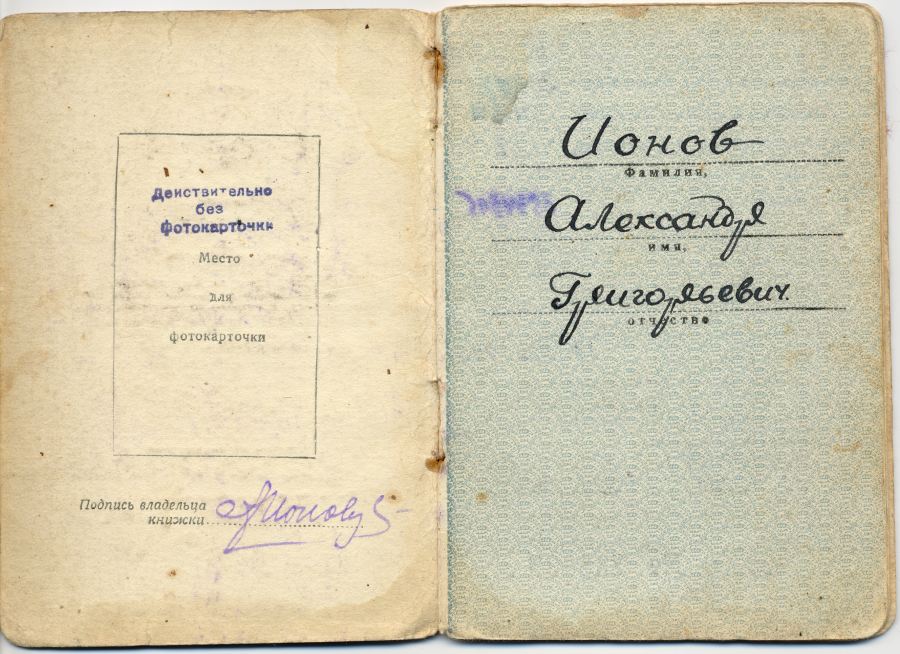 Действительно
без
фотокарточки
Место
для
фотокарточки
Подпись владельца
книжки
Ионов
Фамилия,
Александр
имя,
Григорьевич.
отчество